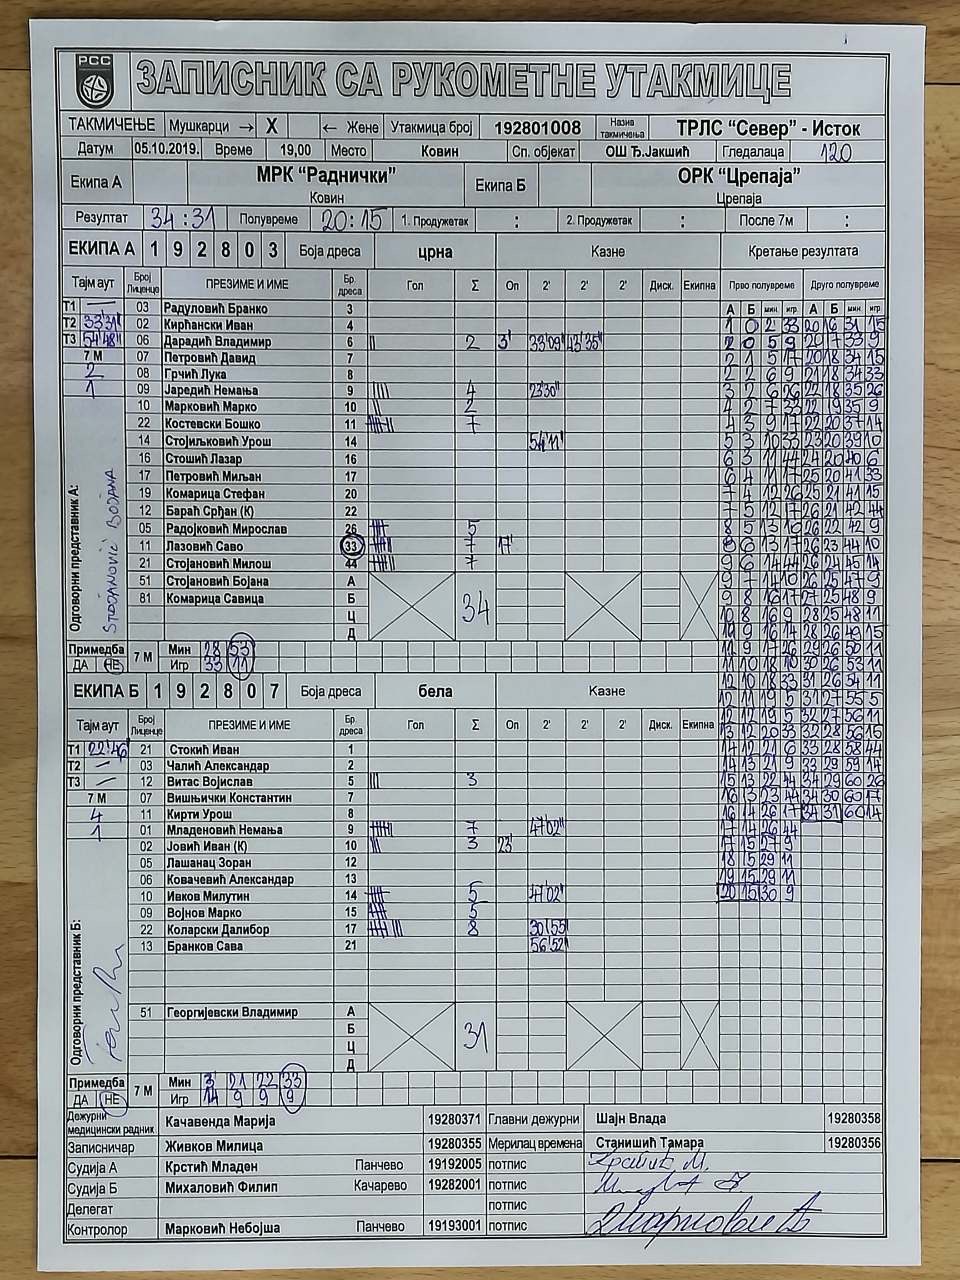 РСС
ЗАПИСНИК СА РУКОМЕТНЕ УТАКМИЦЕ
ТАКМИЧЕЊЕ Мушкарци → X ← Жене Утакмица број 192801008 Назив такмичења ТРЛС “Север” - Исток
Датум 05.10.2019. Време 19,00 Место Ковин Сп. објекат ОШ Ђ.Јакшић Гледалаца 120
Екипа А МРК “Раднички” Ковин Екипа Б ОРК “Црепаја” Црепаја
Резултат 34:31 Полувреме 20:15 1. Продужетак : 2. Продужетак : После 7м :
ЕКИПА А 1 9 2 8 0 3 Боја дреса црна Казне Кретање резултата
Тајм аут Број Лиценце ПРЕЗИМЕ И ИМЕ Бр. дреса Гол Σ Оп 2' 2' 2' Диск. Екипна Прво полувреме Друго полувреме
А Б мин. игр. А Б мин игр
Т1 — 03 Радуловић Бранко 3
Т2 33'31" 02 Кирћански Иван 4
Т3 54'48" 06 Дарадић Владимир 6 || 2 3' 33'09" 43'35"
7 М 07 Петровић Давид 7
2 08 Грчић Лука 8
1 09 Јаредић Немања 9 |||| 4 23'30"
10 Марковић Марко 10 || 2
22 Костевски Бошко 11 7
14 Стојиљковић Урош 14 54'11"
16 Стошић Лазар 16
17 Петровић Миљан 17
19 Комарица Стефан 20
12 Бараћ Срђан (К) 22
05 Радојковић Мирослав 26 5
11 Лазовић Саво 33 7 17'
21 Стојановић Милош 44 7
51 Стојановић Бојана А
81 Комарица Савица Б 34
Ц
Д
Одговорни представник А: STOJANOVIĆ BOJANA
Примедба ДА НЕ 7 М Мин 28 53
Игр 33 11
1 0 2 33 20 16 31 15
2 0 5 9 20 17 33 9
2 1 5 17 20 18 34 15
2 2 6 9 21 18 34 33
3 2 6 26 22 18 35 26
4 2 7 33 22 19 35 9
4 3 9 17 22 20 37 14
5 3 10 33 23 20 39 10
6 3 11 44 24 20 40 6
6 4 11 17 25 20 41 33
7 4 12 26 25 21 41 15
7 5 12 17 26 21 42 44
8 5 13 16 26 22 42 9
8 6 13 17 26 23 44 10
9 6 14 44 26 24 45 14
9 7 14 10 26 25 47 9
9 8 16 17 27 25 48 9
10 8 16 9 28 25 48 11
10 9 16 14 28 26 49 15
11 9 17 26 29 26 50 11
11 10 18 10 30 26 53 11
12 10 18 33 31 26 54 11
12 11 19 5 31 27 55 5
12 12 19 5 32 27 56 11
13 12 20 33 32 28 56 15
14 12 21 6 33 28 58 44
14 13 21 9 33 29 59 14
15 13 22 44 34 29 60 26
16 13 23 44 34 30 60 17
16 14 26 17 34 31 60 14
17 14 26 44
17 15 27 9
18 15 29 11
19 15 29 11
20 15 30 9
ЕКИПА Б 1 9 2 8 0 7 Боја дреса бела Казне
Тајм аут Број Лиценце ПРЕЗИМЕ И ИМЕ Бр. дреса Гол Σ Оп 2' 2' 2' Диск. Екипна
Т1 22'46" 21 Стокић Иван 1
Т2 — 03 Чалић Александар 2
Т3 — 12 Витас Војислав 5 ||| 3
7 М 07 Вишњички Константин 7
4 11 Кирти Урош 8
1 01 Младеновић Немања 9 7 47'02"
02 Јовић Иван (К) 10 ||| 3 23'
05 Лашанац Зоран 12
06 Ковачевић Александар 13
10 Ивков Милутин 14 5 47'02"
09 Војнов Марко 15 5
22 Коларски Далибор 17 8 30'55"
13 Бранков Сава 21 56'52"
51 Георгијевски Владимир А
Б 31
Ц
Д
Одговорни представник Б:
Примедба ДА НЕ 7 М Мин 3' 21 22 33
Игр 14 9 9 9
Дежурни медицински радник Качавенда Марија 19280371 Главни дежурни Шајн Влада 19280358
Записничар Живков Милица 19280355 Мерилац времена Станишић Тамара 19280356
Судија А Крстић Младен Панчево 19192005 потпис
Судија Б Михаловић Филип Качарево 19282001 потпис
Делегат потпис
Контролор Марковић Небојша Панчево 19193001 потпис